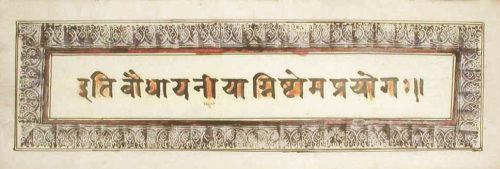 इति बौधायनीयाग्निष्टोमप्रयोगः॥